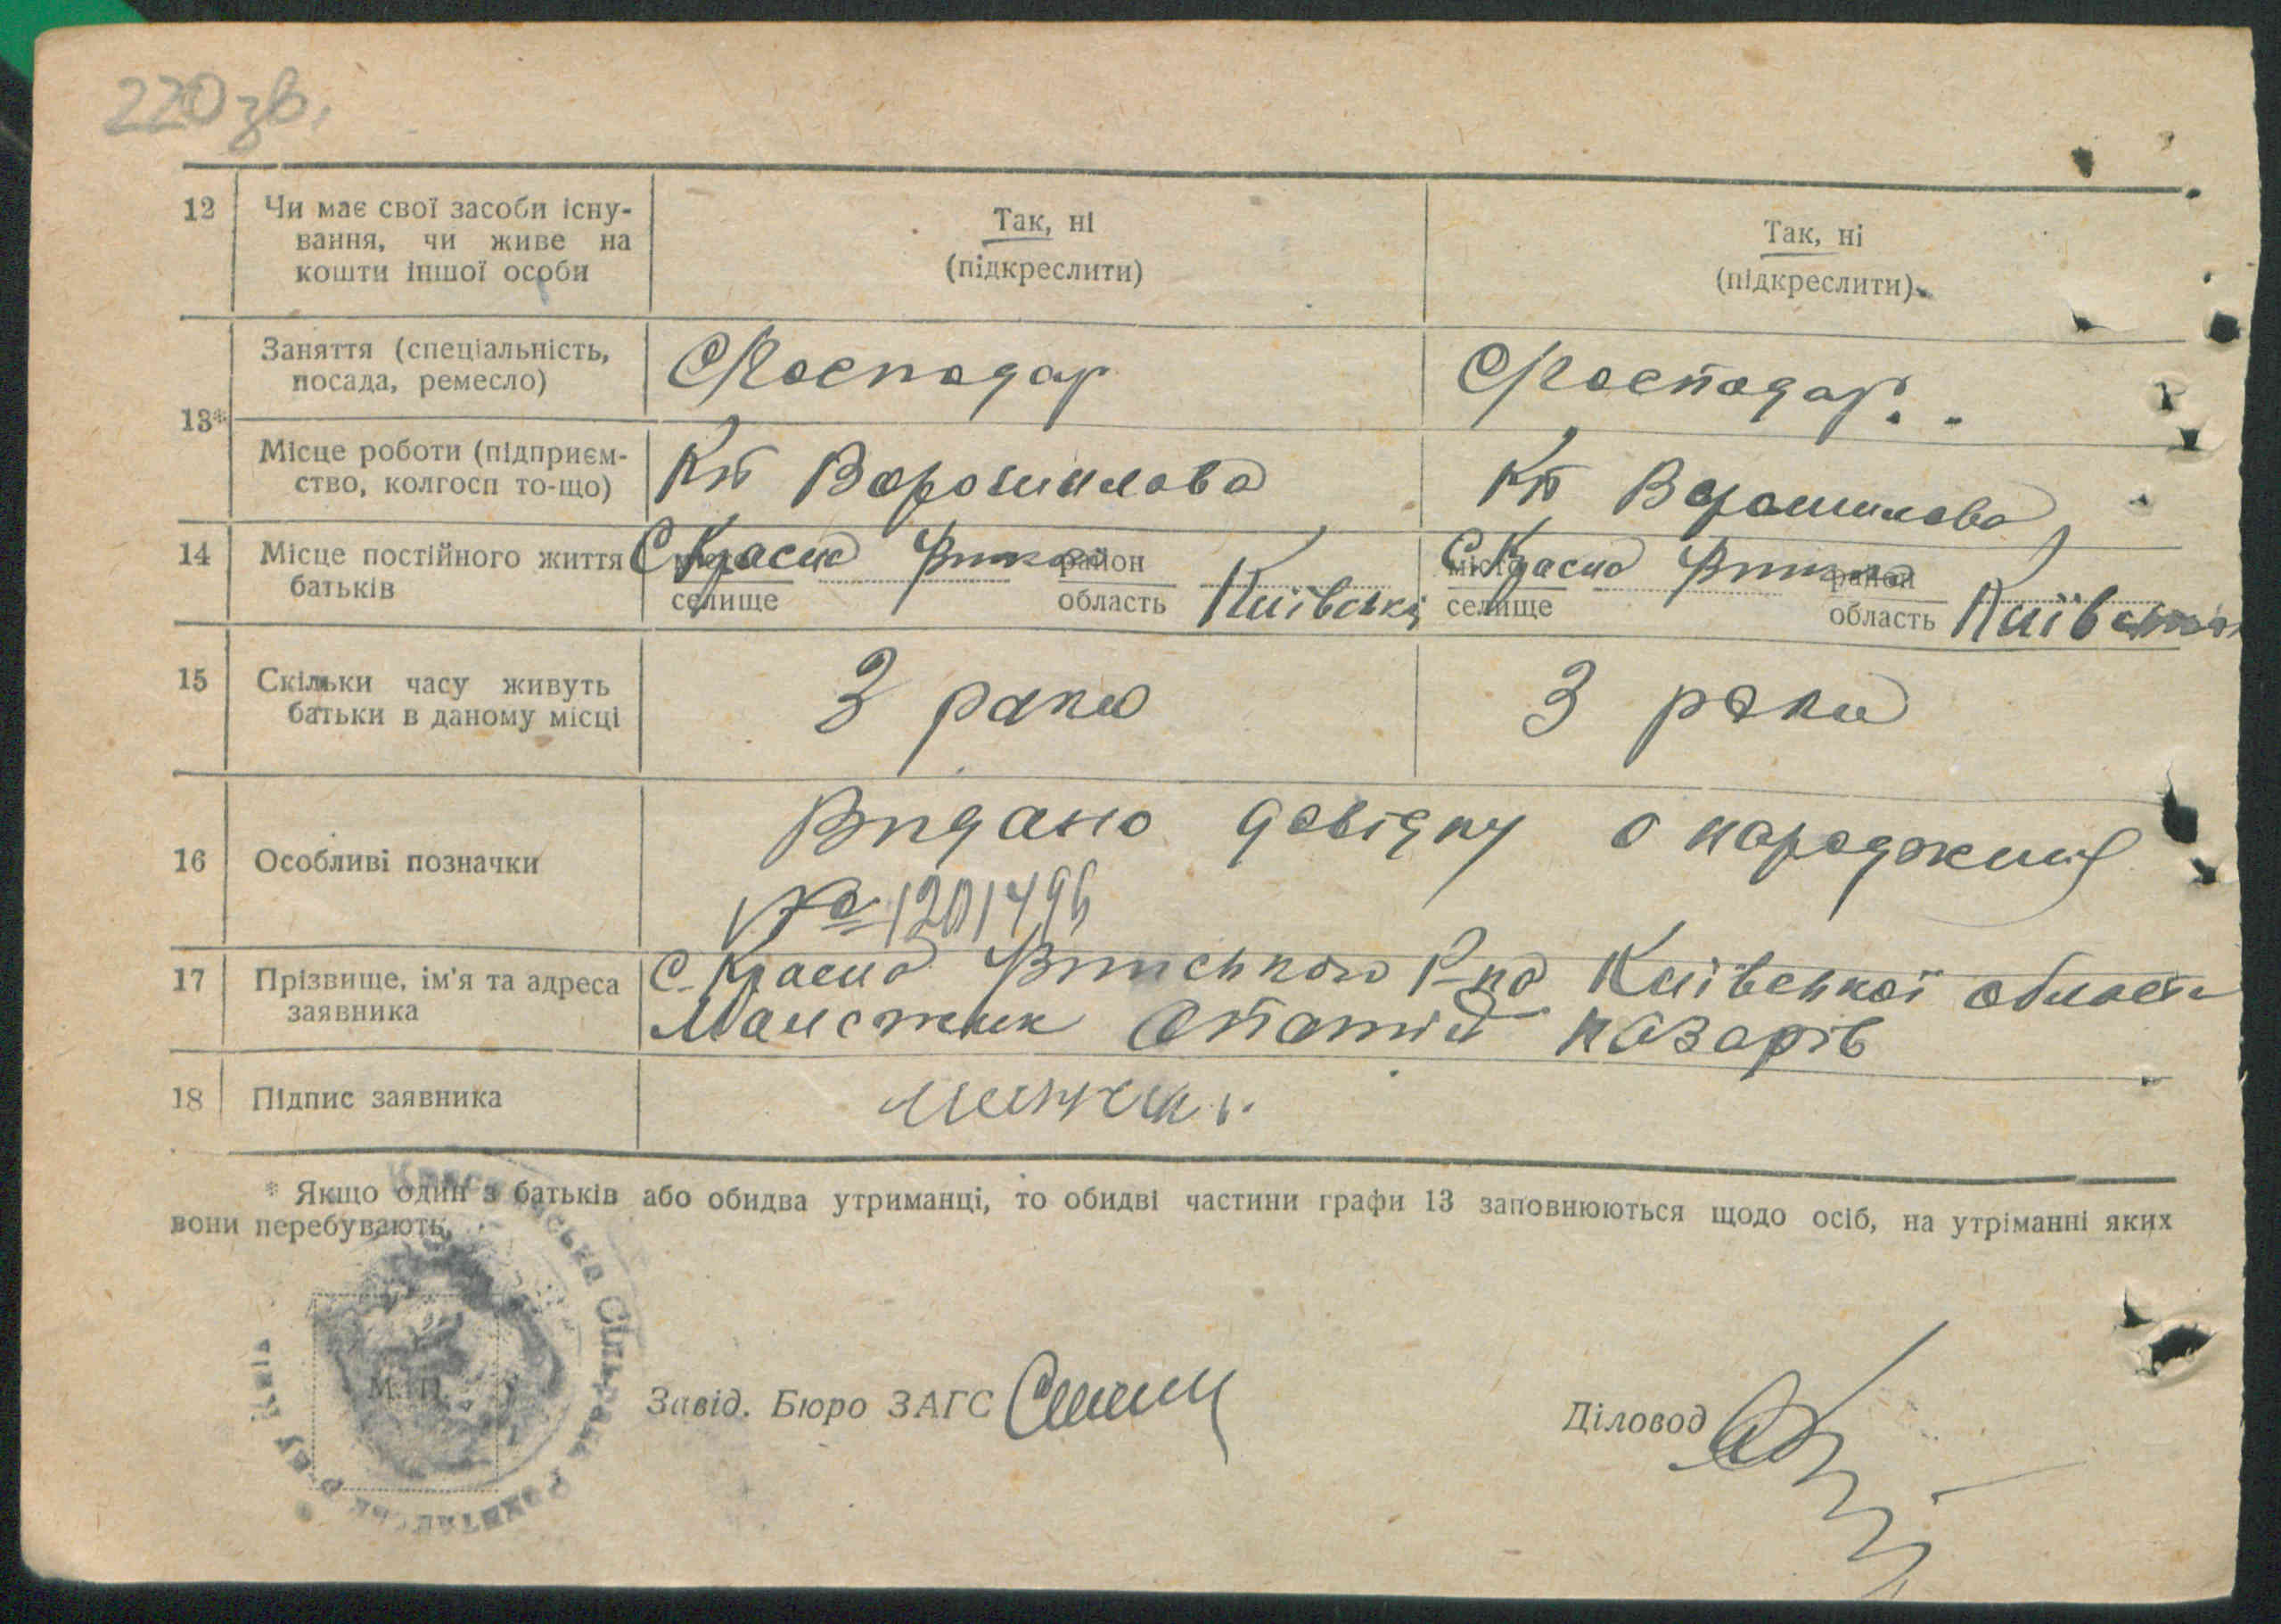 220 зв.
12 Чи має свої засоби існу-
вання, чи живе на
кошти іншої особи
Так, ні
(підкреслити)
Так, ні
(підкреслити)
13*
Заняття (спеціальність,
посада, ремесло)
Місце роботи (підприєм-
ство, колгосп то-що)
Кп Ворошилова
Кп Ворошилова
14 Місце постійного життя
батьків
С Красна
місто
селище
район
область
Київська
С Красна
місто
селище
район
область
Київська
15 Скільки часу живуть
батьки в даному місці
3 роки
3 роки
16 Особливі позначки
Видано довідку о народженні
№ 1201496
17 Прізвище, ім'я та адреса
заявника
С. Красна р-на Київської області
18 Підпис заявника
* Якщо один з батьків або обидва утриманці, то обидві частини графи 13 заповнюються щодо осіб, на утріманні яких
вони перебувають.
М. П.
Сільрада
Завід. Бюро ЗАГС
Діловод